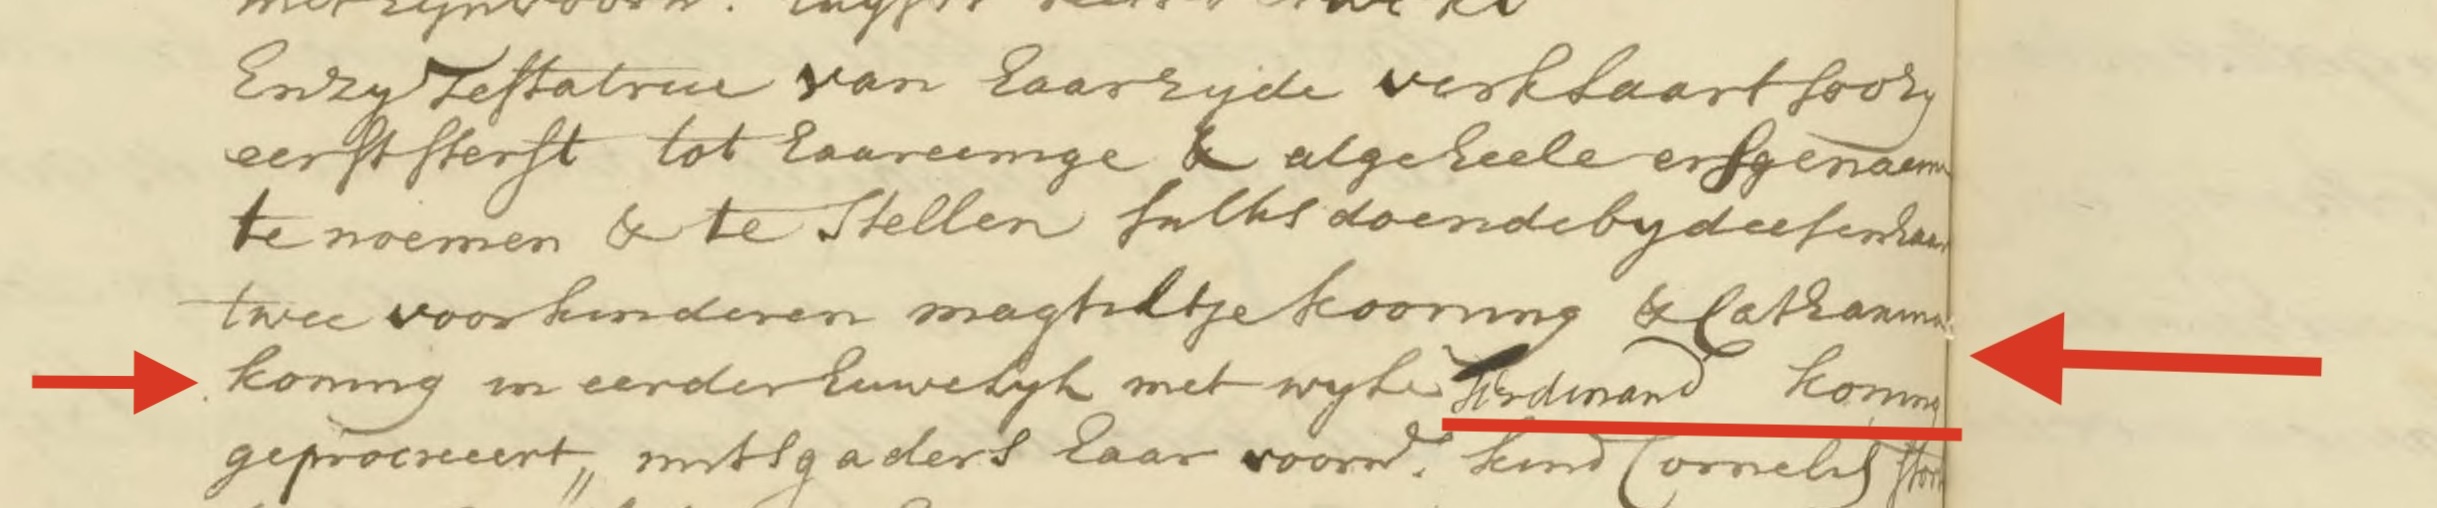 En zy Testatrice van haar zyde verklaart soo zy
eerst sterft tot haar eenige & algeheele erfgenaem
te noemen & te Stellen sulks doende by deesen haar
twee voorkinderen magteltje kooning & Catharina
koning in eerder huwelyk met wyle ferdinand koning
geprocreeert, mitsgaders haar voorn: kind Cornelis